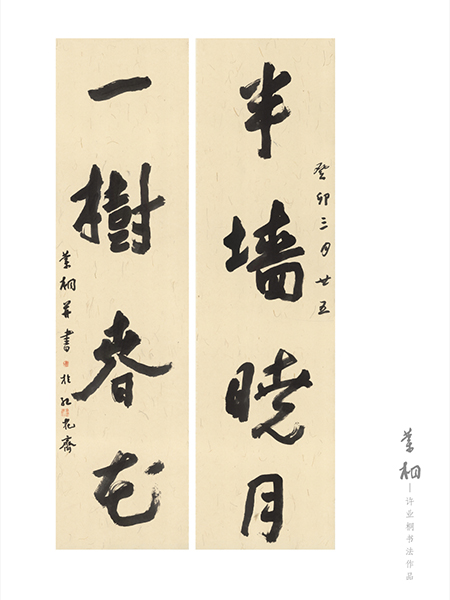 半墙曉月
癸卯三月廿五
一樹春花
業桐并書於花齋
業桐
许业桐书法作品